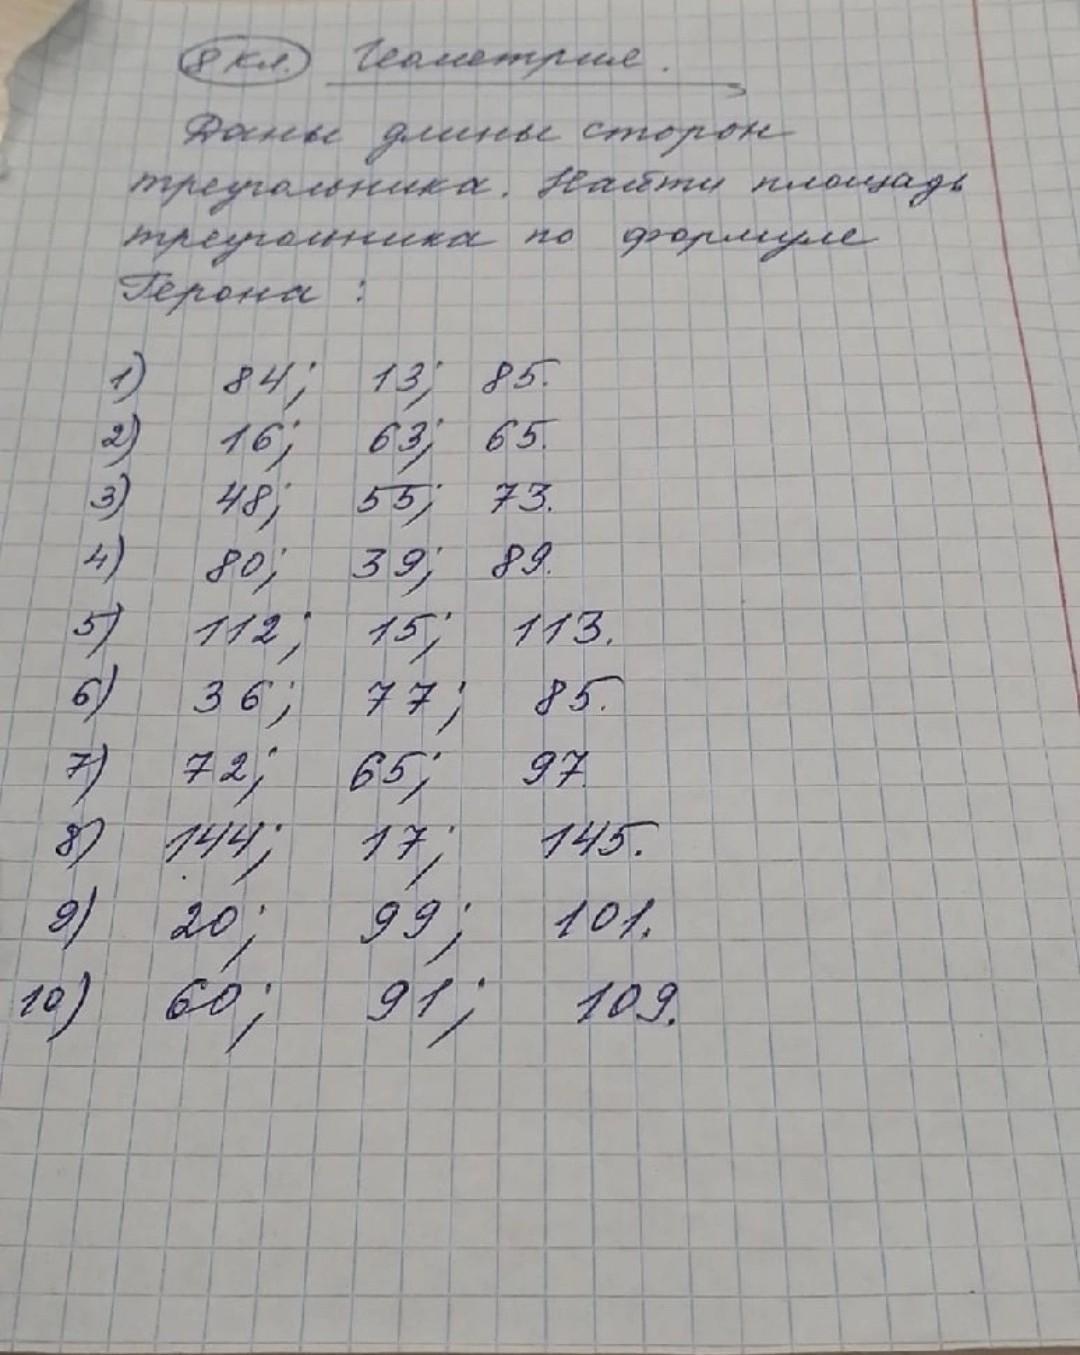 8 кл. Геометрия.
Даны длины сторон
треугольника. Найти площадь
треугольника по формуле
Герона :
1) 84; 13; 85.
2) 16; 63; 65.
3) 48; 55; 73.
4) 80; 39; 89.
5) 112; 15; 113.
6) 36; 77; 85.
7) 72; 65; 97
8) 144; 17; 145.
9) 20; 99; 101.
10) 60; 91; 109.